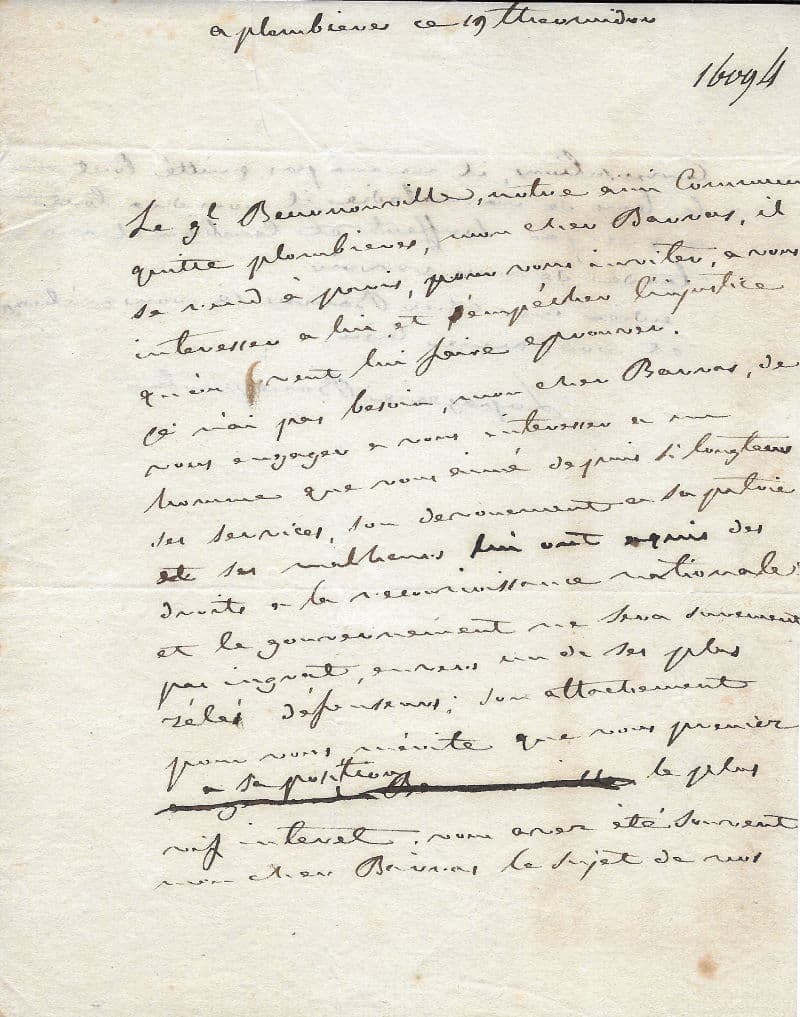 a plombieres ce 19 thermidor
16094
Le gl Beurnonville, notre ami Commun
quitte plombieres, mon cher Barras, il
se rend à paris, pour vous inviter, a vous
interesser a lui et d'empécher l'injustice
qu'on veut lui faire eprouver.
Je n'ai pas besoin, mon cher Barras, de
vous engager a vous interesser a un
homme que vous aimé depuis si longtems
ses services, son devouement a sa patrie
et ses malheurs lui ont aquis des
droits a la reconnoissance nationale
et le gouvernement ne sera surement
pas ingrat, envers un de ses plus
zélés défenseurs; son attachement
pour vous mérite que vous preniez
a sa position
le plus
vif interet, vous avez été souvent
mon cher Barras le sujet de nos